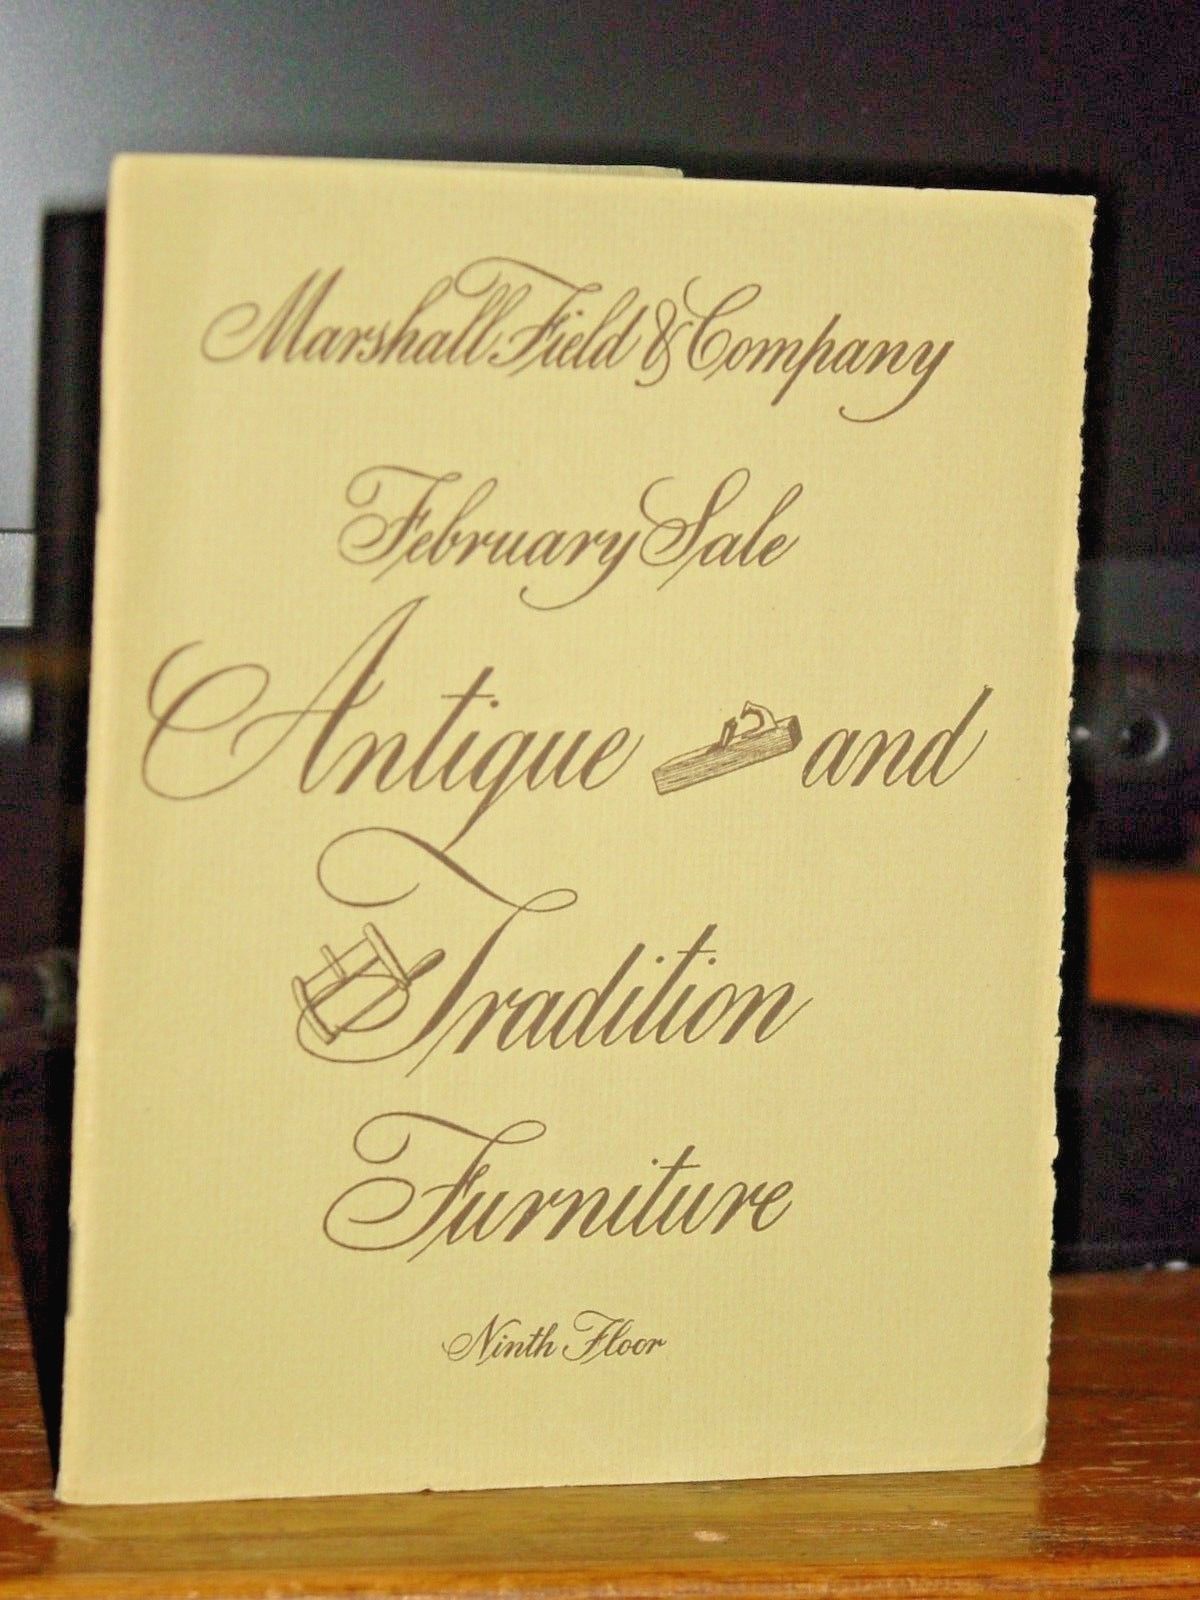 Marshall Field & Company
February Sale
Antique and
Tradition
Furniture
Ninth Floor